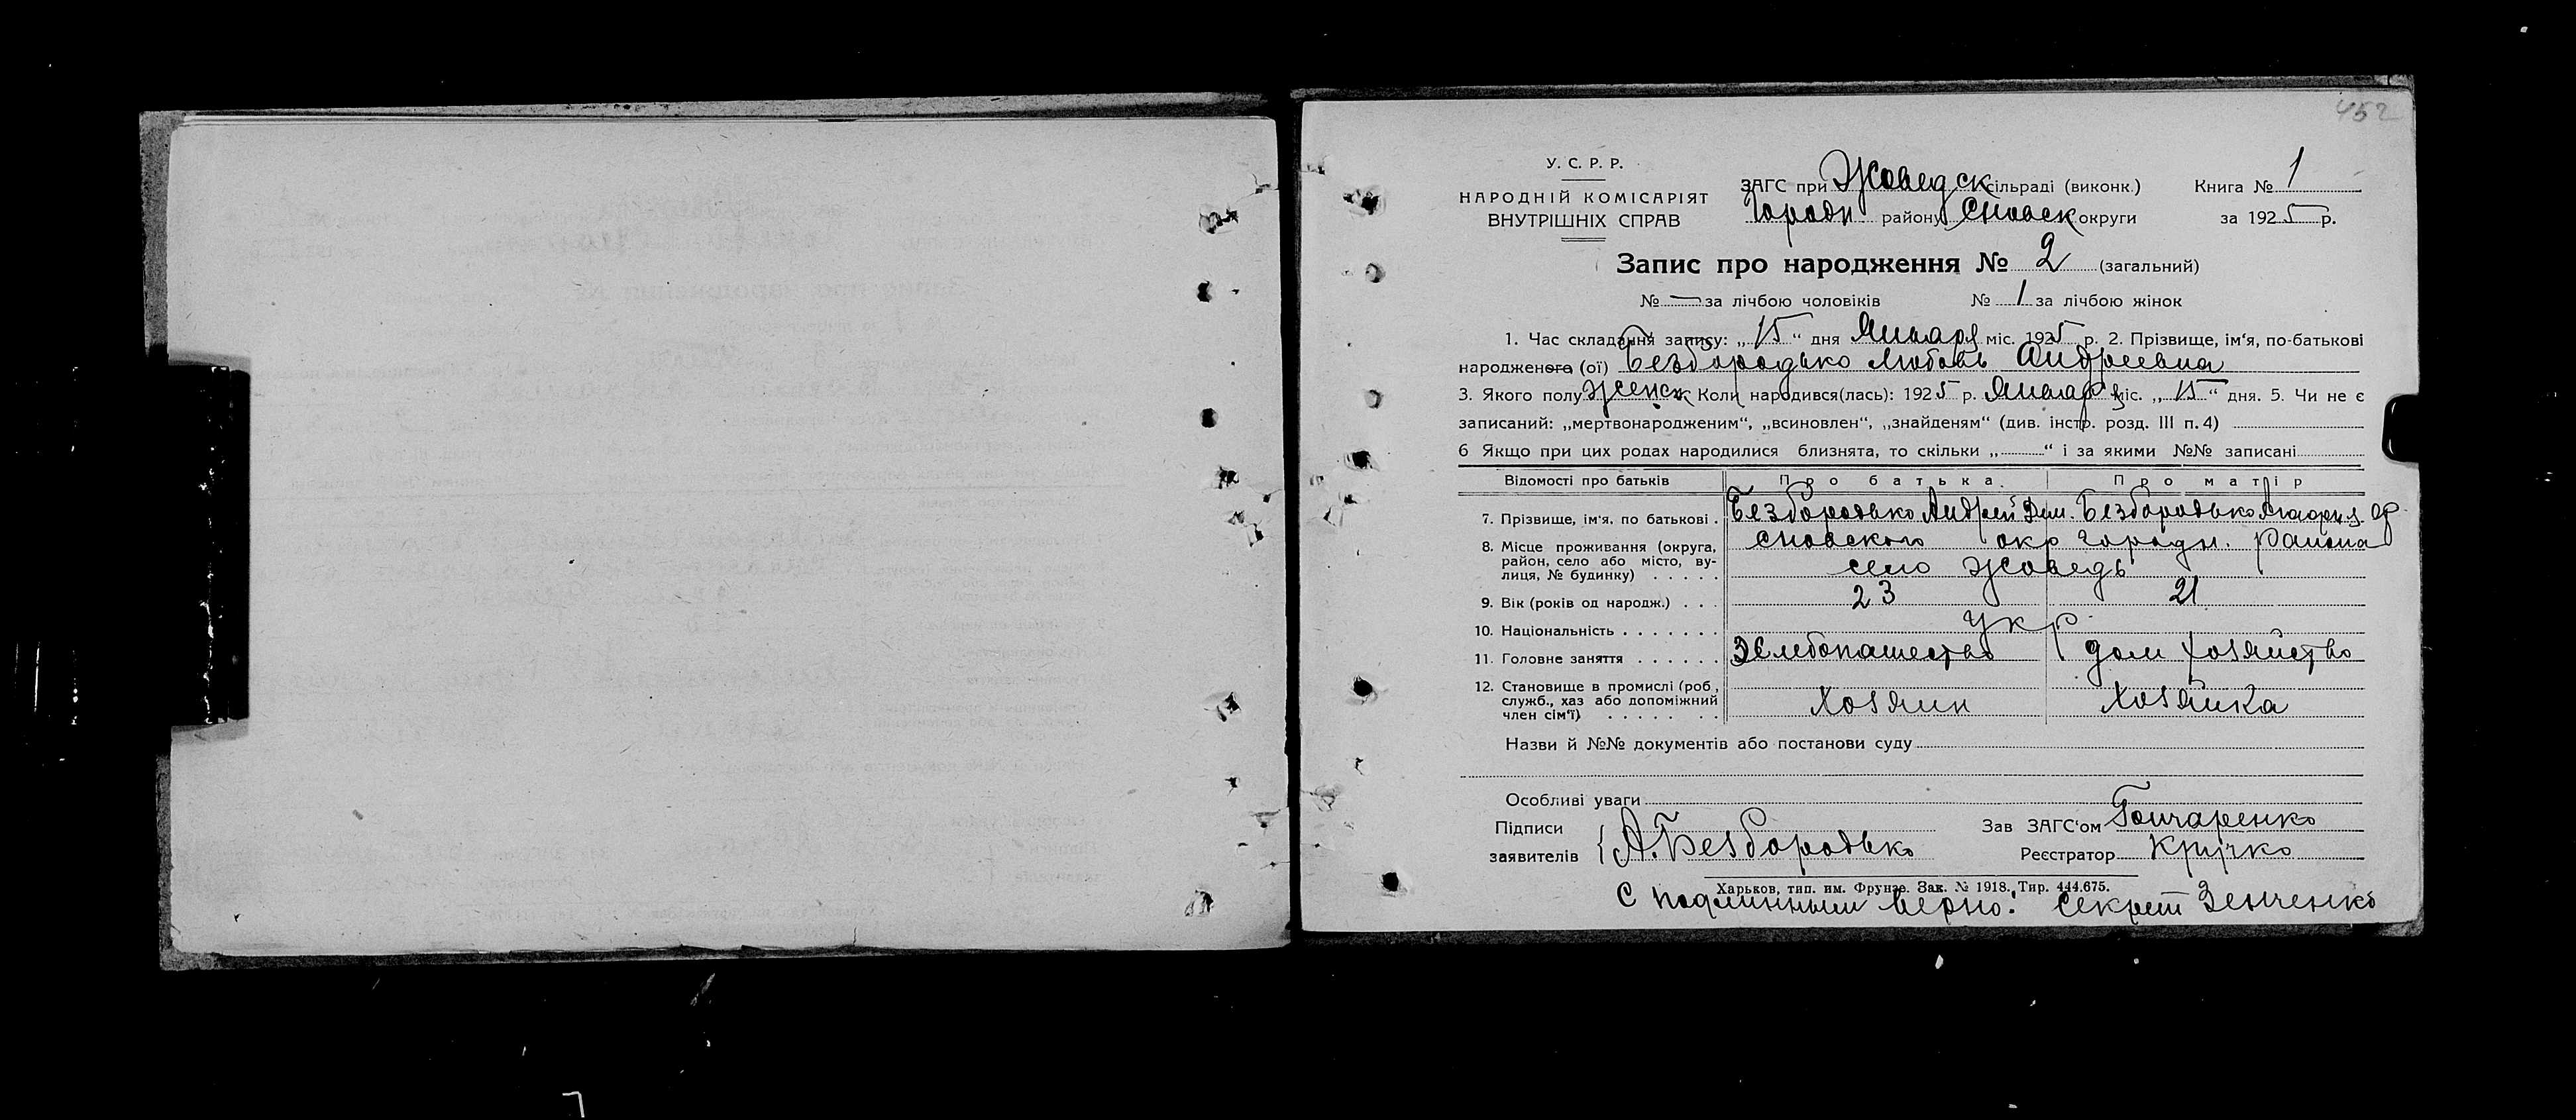 452
У. С. Р. Р.
НАРОДНІЙ КОМІСАРІЯТ
ВНУТРІШНІХ СПРАВ
ЗАГС при Жоведск сільраді (виконк.) Книга № 1
Городн району Сновск округи за 1925 р.
Запис про народження № 2 (загальний)
№ — за лічбою чоловіків № 1 за лічбою жінок
1. Час складання запису: „15“ дня Января міс. 1925 р. 2. Прізвище, ім'я, по-батькові
народженого (ої) Безбородько Любовь Андреевна
3. Якого полу женск Коли народився(лась): 1925 р. Января міс. „15“ дня. 5. Чи не є
записаний: „мертвонародженим“, „всиновлен“, „знайденям“ (див. інстр. розд. III п. 4)
6 Якщо при цих родах народилися близнята, то скільки „ “ і за якими №№ записані
Відомості про батьків Про батька. Про матір
7. Прізвище, ім'я, по батькові . Безбородько Андрей Дем. Безбородько
8. Місце проживання (округа, район, село або місто, вулиця, № будинку) Сновского окр Городн. района
село Жоведь
9. Вік (років од народж.) . . . 23 21
10. Національність . . . . . . . Укр.
11. Головне заняття . . . . . . Хлебопашество дом хозяйство
12. Становище в промислі (роб., служб., хаз або допоміжний член сім'ї) Хозяин Хозяйка
Назви й №№ документів або постанови суду
Особливі уваги
Підписи заявителів А. Безбородько
Зав ЗАГС'ом Гончаренко
Реєстратор Кручко
Харьков, тип. им. Фрунзе. Зак. № 1918. Тир. 444.675.
С подлинным верно: Секрет Зенченко